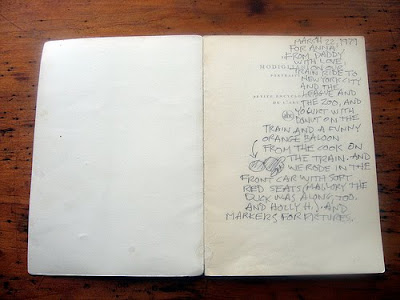 MARCH 22, 1979
FOR ANNA,
FROM DADDY
WITH LOVE
MODIGLIANI
ON OUR
TRAIN RIDE TO
NEW YORK CITY
AND THE
AND
THE ZOO, AND
YOGURT WITH
DONUT ON THE
TRAIN AND A FUNNY
ORANGE BALOON
FROM THE COOK ON
THE TRAIN. AND
WE RODE IN THE
FRONT CAR WITH SOFT
RED SEATS (MALLORY THE
DUCK WAS ALONG, TOO.
AND HOLLY H.) AND
MARKERS FOR PICTURES.